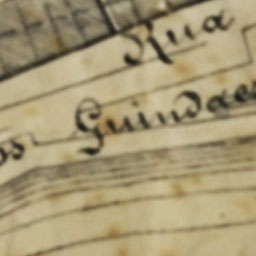 Rua
os Guindaes